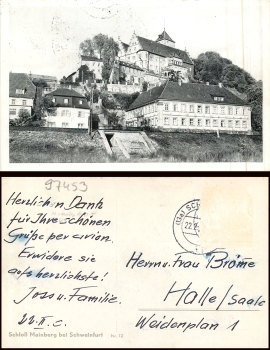 97453
Herzlich'n Dank
für Ihre schönen
Grüße per avion.
Erwidere sie
aufs herzlichste!
Joso u. Familie.
22.II. c.
Herrn u. Frau Bröme
Halle/Saale
Weidenplan 1
Schloß Mainberg bei Schweinfurt - Nr. 12